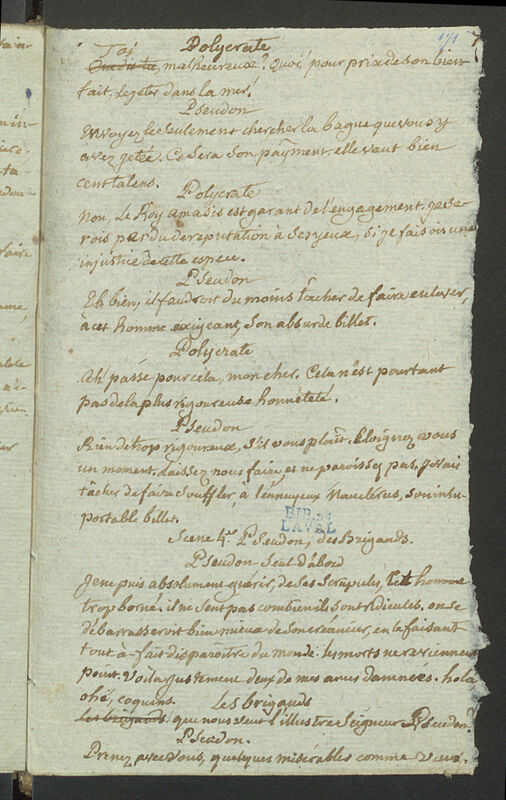 171
Polycrate
Toi
Que dis tu, malheureux? Quoi! pour prix de son bien
fait, le jeter dans la mer!
Pseudon
Envoyez le seulement chercher la bague que vous y
avez jetée. Ce sera son payment. elle vaut bien
cent talens.
Polycrate
Non, Le Roy amasis est garant de l'engagement. je se
rois perdu de reputation à ses yeux, si je faisois une
injustice de cette espece.
Pseudon
Eh bien, il faudroit du moins tâcher de faire enlever,
à cet homme exigeant, son absurde billet.
Polycrate
Ah! passe pour cela, mon cher. Cela n'est pourtant
pas de la plus rigoureuse honnêteté.
Pseudon
Rien de trop rigoureux, s'il vous plaît. Eloignez vous
un moment. laissez nous faire, et ne paroissez pas. Je vais
tâcher de faire souffler, à l'ennuyeux Nauclérus, son insu-
portable billet.
BIB. DE
LAVAL
Scene 4.e Pseudon, des Brigands.
Pseudon seul d'abord
Je ne puis absolument guérir, de ses scrupules, cet homme
trop borné. il ne sent pas combien ils sont ridicules. on se
débarrasseroit bien mieux de son créancier, en le faisant
tout-à-fait disparoître du monde. les morts ne reviennent
point. Voilà justement deux de mes amis damnées. hola
ohé, coquins.
Les brigands
Les brigands. que nous veut l'illustre Seigneur Pseudon?
Pseudon.
Prenez avec vous, quelques misérables comme vous,